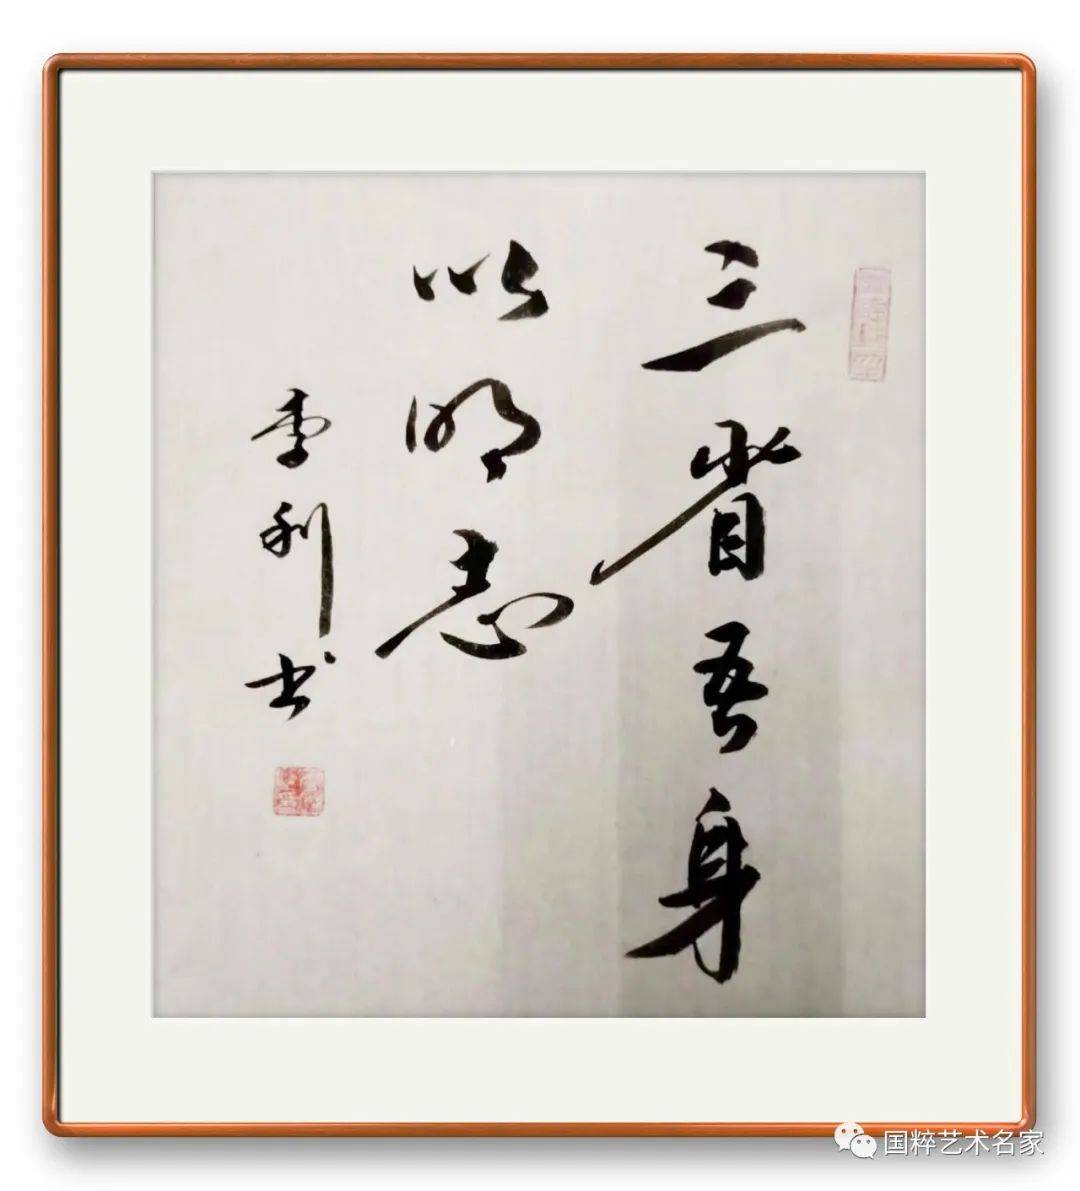 三省吾身
以明志
李利书
国粹艺术名家